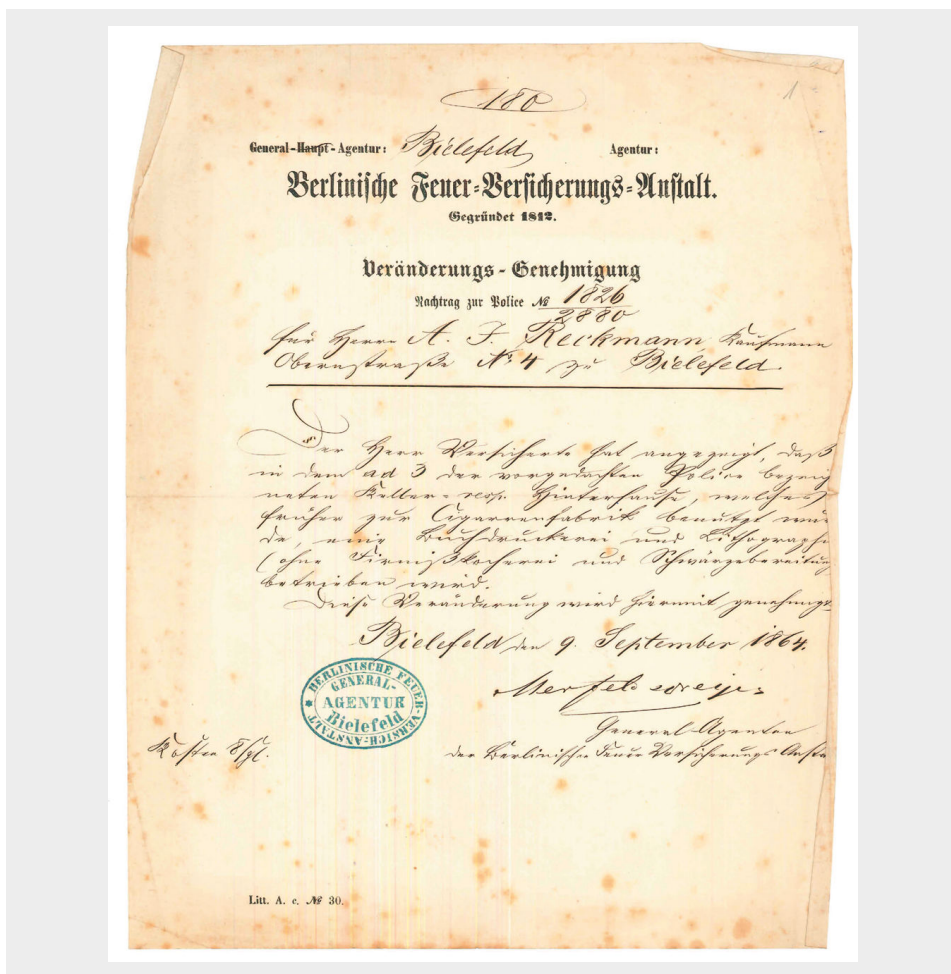 180
1
General-Haupt-Agentur: Bielefeld Agentur:
Berlinische Feuer-Versicherungs-Anstalt.
Gegründet 1812.
Veränderungs-Genehmigung
Nachtrag zur Police № 1826
2880
für Herrn A. F. Reckmann Kaufmann
Obernstraße No 4 zu Bielefeld.
Der Herr Versicherte hat angezeigt, daß
in dem ad 3 der vorgedachten Police bezeig
neten Keller- resp. Hinterhause, welches
früher zur Cigarrenfabrik benutzt wur
de, eine Buchdruckerei und Lithographie
(ohne Firnißkocherei und Schwärzebereitung
betrieben wird.
Diese Veränderung wird hiermit genehmigt
Bielefeld den 9. September 1864.
BERLINISCHE FEUER-VERSICH-ANSTALT
GENERAL-
AGENTUR
Bielefeld
General-Agenten
Kosten 8
der Berlinischen Feuer Versicherungs Ansta
Litt. A. c. № 30.